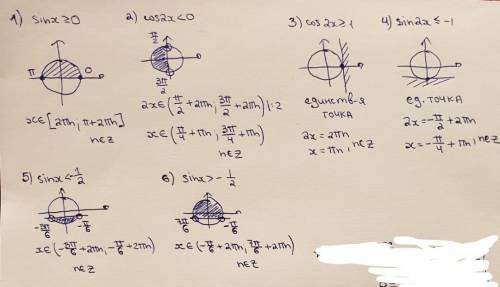 1) sinx≥0
π 0
x∈[2πn, π+2πn]
n∈Z
2) cos2x<0
π/2
3π/2
2x∈(π/2+2πn, 3π/2+2πn) |:2
x∈(π/4+πn, 3π/4+πn)
n∈Z
3) cos2x≥1
единств-я
точка
2x=2πn
x=πn, n∈Z
4) sin2x≤-1
ед. точка
2x=-π/2+2πn
x=-π/4+πn, n∈Z
5) sinx<-1/2
-5π/6 -π/6
x∈(-5π/6+2πn, -π/6+2πn)
n∈Z
6) sinx>-1/2
7π/6 -π/6
x∈(-π/6+2πn, 7π/6+2πn)
n∈Z